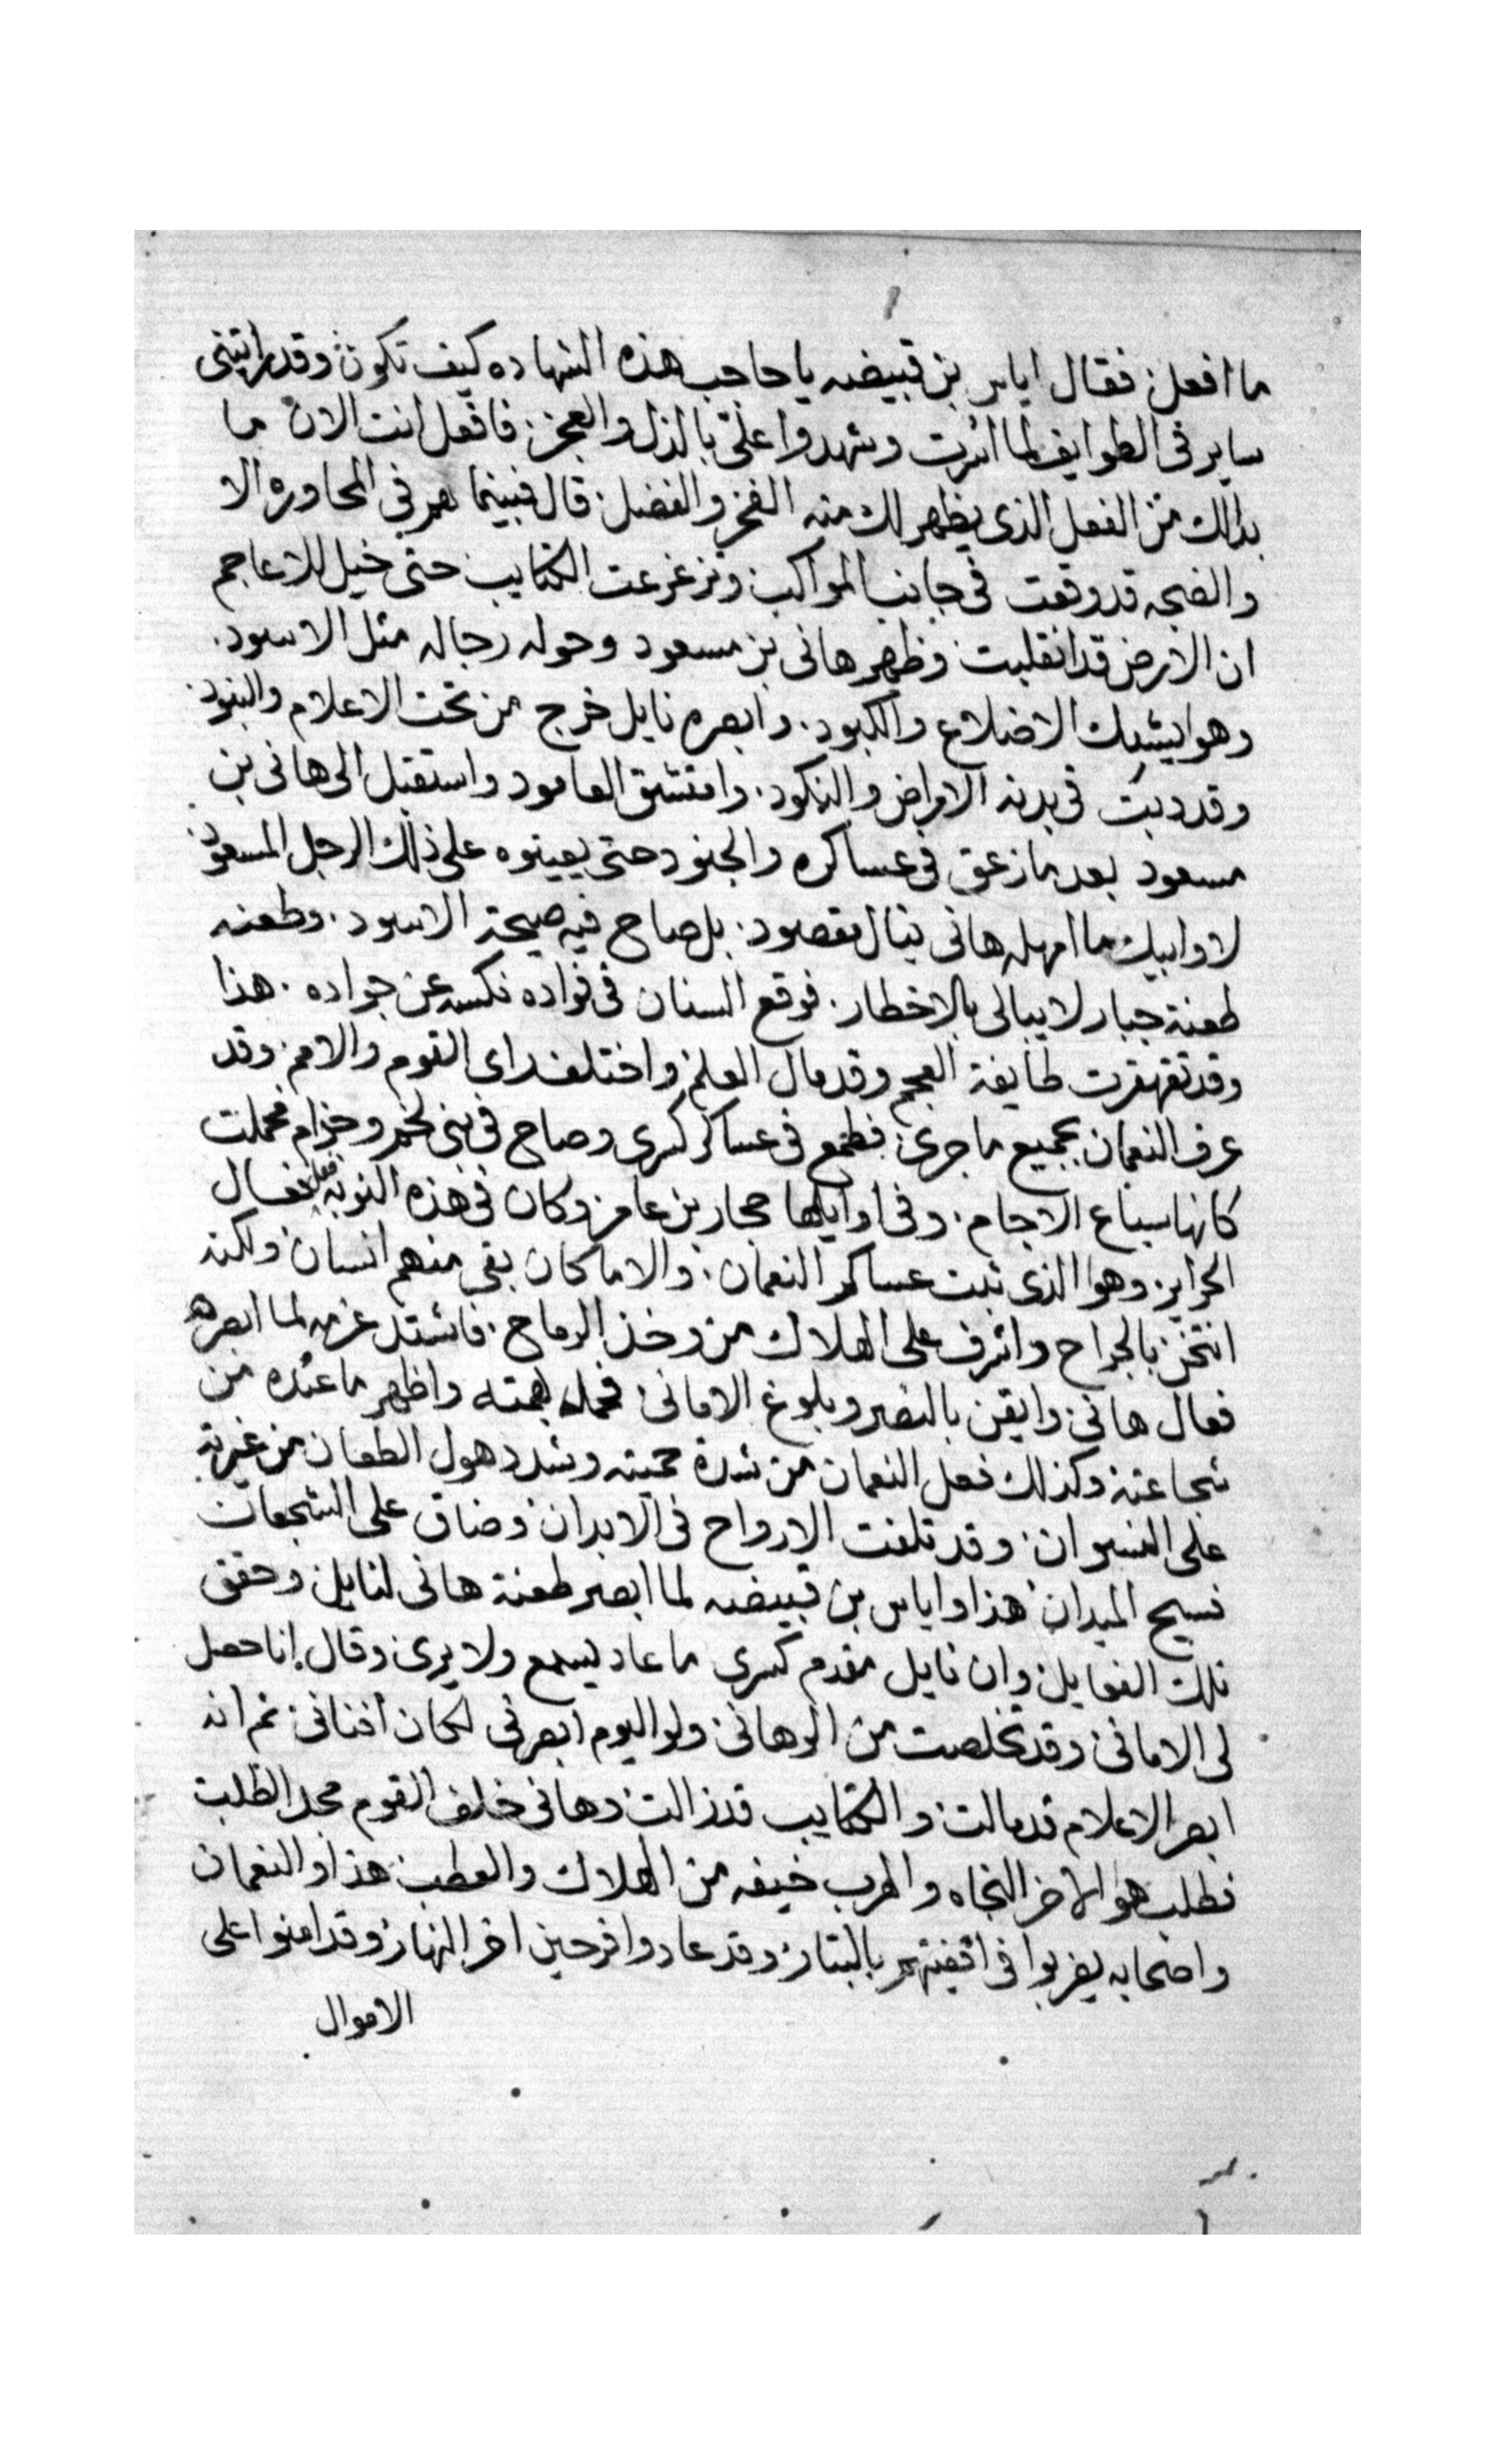 ما افعل فقال اياس بن قبيضه يا حاجب هذه الشهاده كيف تكون وقد راتينى
ساير فى الطوايف لما اسرت وشهدوا على بالذل والعجز فافعل انت الان ما
بدالك من الفعل الذى يظهر لك منه الفخر والفضل قال فبينما هم فى المحاوره الا
والضجه قد وقعت فى جانب المواكب وتزعزعت الكتايب حتى خيل للاعاجم
ان الارض قد انقلبت وظهر هانى بن مسعود وحوله رجاله مثل الاسود
وهو يشك الاضلاع والكبود وابصره نايل خرج من تحت الاعلام والبنود
وقد دبت فى بدنه الامراض والنكود وامتشق العامود واستقبل الى هانى بن
مسعود بعد ما زعق فى عساكره والجنود حتى يعينوه على ذلك الرجل المسعود
لا وابيك ما امهله هانى ينال مقصود بل صاح فيه صيحة الاسود وطعنه
طعنة جبار لا يبالى بالاخطار فوقع السنان فى فواده نكسه عن جواده هذا
وقد تقهقرت طايفة العجم وقد مال العلم واختلف راى القوم والامم وقد
عرف النعمان بجميع ما جرى فطمع فى عساكر كسرى وصاح فى بنى لخم وجزام فحملت
كانها سباع الاجام وفى اوايلها حجار بن عامر وكان فى هذه النوبه فعل فعال
الجراير وهوا الذى ثبت عساكر النعمان والا ما كان بقى منهم انسان ولكنه
انثخن بالجراح واشرف على الهلاك من وخذ الرماح فاشتد عزمه لما ابصره
فعال هانى وايقن بالنصر وبلوغ الامانى فحمل بهمته واظهر ما عنده من
شجاعته وكذلك فعل النعمان من شدة حميته وشدد هول الطعان من غيرته
على النسوان وقد تلفت الارواح فى الابدان وضاق على الشجعان
فسيح الميدان هذا واياس بن قبيضه لما ابصر طعنة هانى لنايل وحقق
تلك الفعايل وان نايل مقدم كسرى ما عاد يسمع ولا يرى وقال انا حصل
لى الامانى وقد تخلصت من الوهانى ولو اليوم ابصرنى لكان افنانى ثم انه
ابصر الاعلام قد مالت والكتايب قد زالت وهانى خلف القوم مجد الطلب
فطلب هو الاخر النجاه والهرب خيفه من الهلاك والعطب هذا والنعمان
واصحابه يضربوا فى اقفيتهم بالبتار وقد عادوا فرحين اخر النهار وقد امنوا على
الاموال